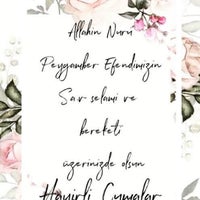 Allahin Nuru
Peygamber Efendimizin
S.a.v-selami ve
bereketi
üzerinizde olsun
Hayirli Cumalar